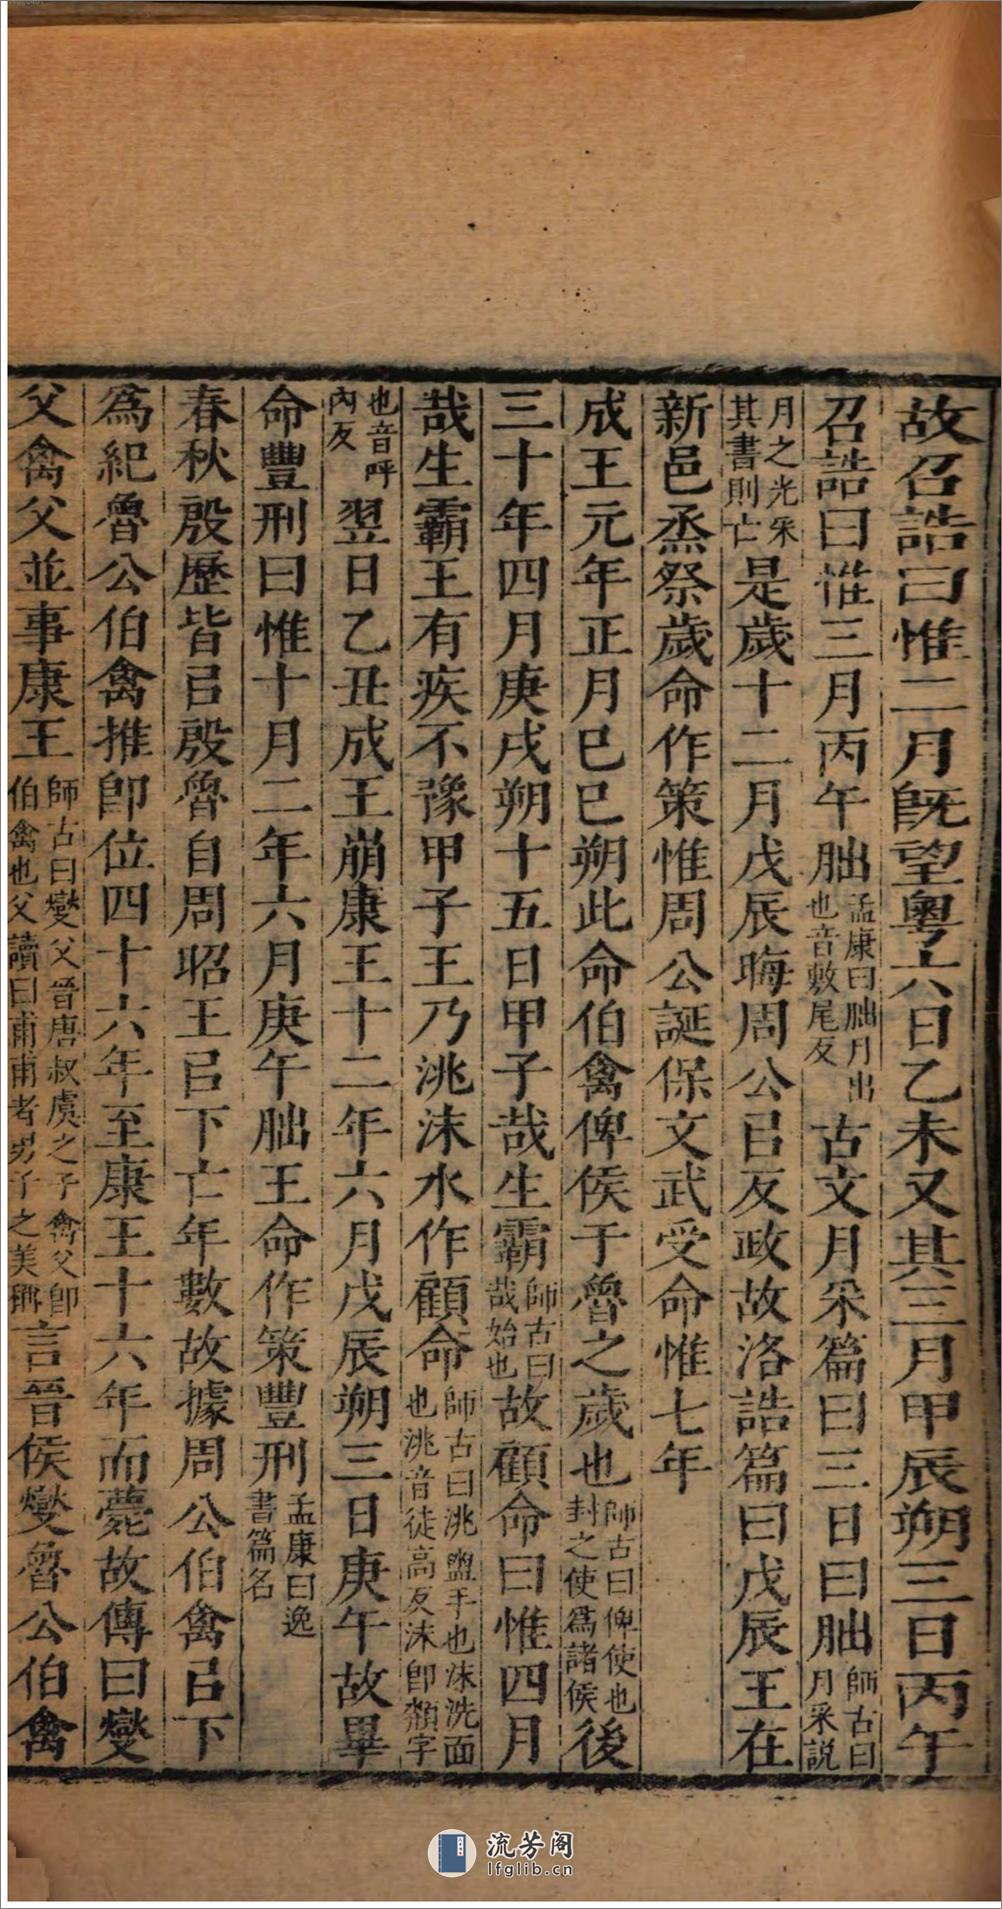 故召誥曰惟二月既望粵六日乙未又其三月甲辰朔三日丙午
召誥曰惟三月丙午朏孟康曰朏月出也音敷尾反古文月采篇曰三日曰朏師古曰月采説
月之光采其書則亡是歲十二月戊辰晦周公㠯反政故洛誥篇曰戊辰王在
新邑烝祭歲命作策惟周公誕保文武受命惟七年
成王元年正月己巳朔此命伯禽俾侯于魯之歲也師古曰俾使也封之使爲諸侯後
三十年四月庚戌朔十五日甲子哉生霸師古曰哉始也故顧命曰惟四月
哉生霸王有疾不豫甲子王乃洮沬水作顧命師古曰洮盥手也沬洗面也洮音徒高反沬即頮字
也音呼內反翌日乙丑成王崩康王十二年六月戊辰朔三日庚午故畢
命豐刑曰惟十月二年六月庚午朏王命作策豐刑孟康曰逸書篇名
春秋殷歷皆㠯殷魯自周昭王㠯下亡年數故據周公伯禽㠯下
爲紀魯公伯禽推即位四十六年至康王十六年而薨故傳曰燮
父禽父並事康王師古曰燮父晉唐叔虞之子禽父即伯禽也父讀曰甫甫者男子之美稱言晉侯燮魯公伯禽
流芳阁
lfglib.cn